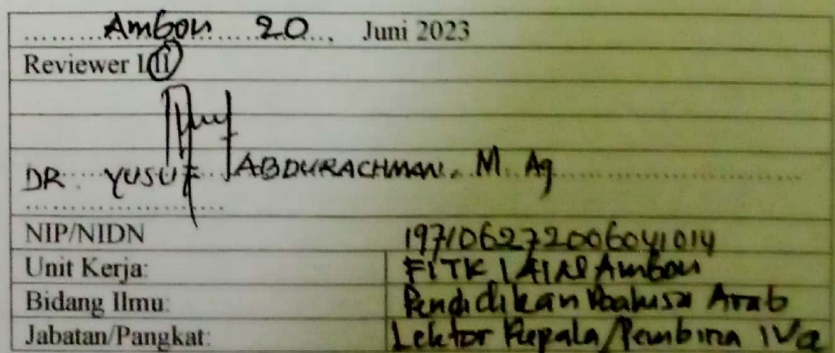 Ambon 20, Juni 2023
Reviewer I/II
DR. YUSUF ABDURACHMAN. M. Ag
NIP/NIDN 197106272006041014
Unit Kerja: FITK IAIN Ambon
Bidang Ilmu: Pendidikan Bahasa Arab
Jabatan/Pangkat: Lektor Kepala/Pembina IVa